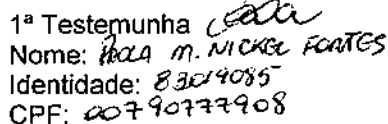 1ª Testemunha
Nome: PAOLA M. NICKEL FORTES
Identidade: 83019085
CPF: 00790777908